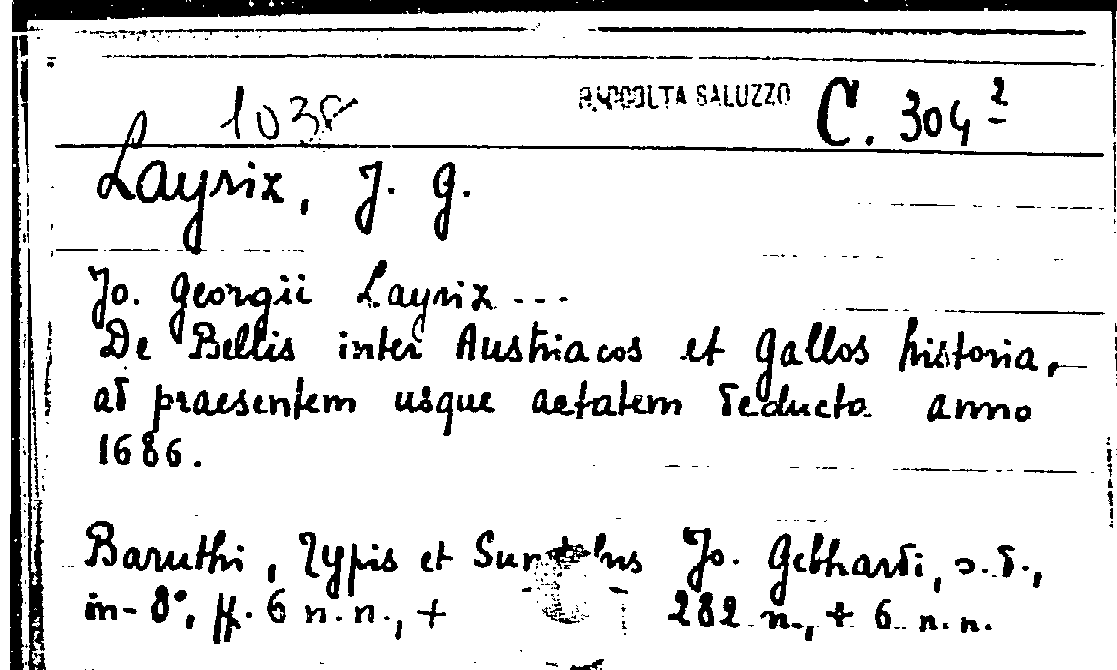 1038 RACCOLTA SALUZZO C. 304 2
Layriz, J. G.
Jo. Georgii Layriz ---
De Bellis inter Austriacos et Gallos historia,
ad praesentem usque aetatem deducta anno
1686.
Baruthi, Typis et Jo. Gebhardi, s.d.,
in-8°, ff. 6 n.n., + 282 n., + 6 n.n.